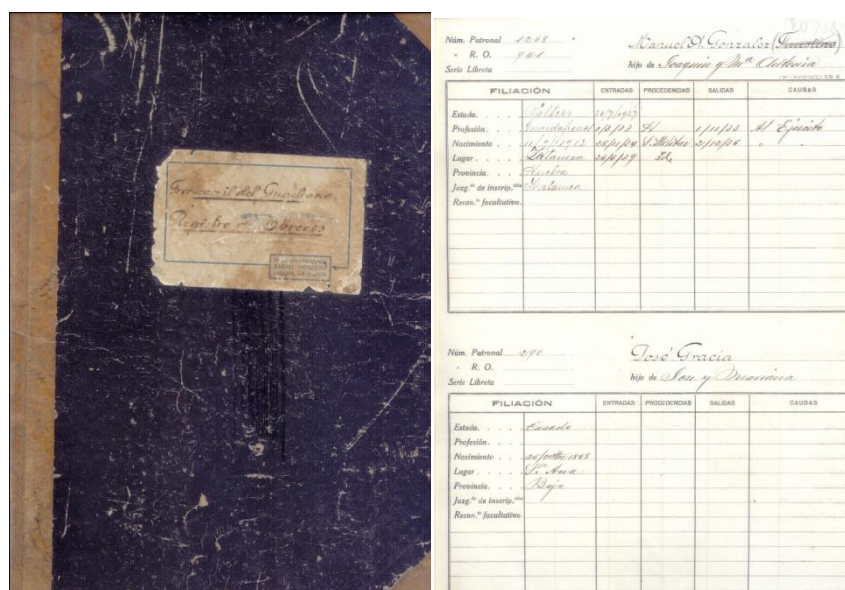 Ferrocarril del Guadiana.
Registro de Obreros
Núm. Patronal 1268
" R. O. 941
Serie Libreta
Manuel A. González (Faustino)
hijo de Joaquín y Mª Antonia
FILIACIÓN ENTRADAS PROCEDENCIAS SALIDAS CAUSAS
Estado. Soltero
Profesión. Guardafrenos 1/8/33 1/11/33 Al Ejército
Nacimiento 11/9/1912 28/11/34 S. Militar 2/12/36 " "
Lugar. Zalamea 26/6/39 Id.
Provincia. Huelva
Juzg.º de inscrip.ción Zalamea
Recon.º facultativo.
Núm. Patronal 290
" R. O.
Serie Libreta
José Gracia
hijo de Jose y Mariana
FILIACIÓN ENTRADAS PROCEDENCIAS SALIDAS CAUSAS
Estado. Casado
Profesión.
Nacimiento 1868
Lugar. Sª Ana
Provincia. Beja
Juzg.º de inscrip.ción
Recon.º facultativo.